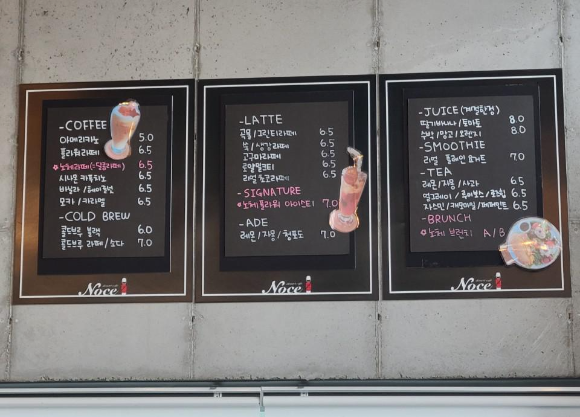 -COFFEE
아메리카노 5.0
플라워라떼 6.5
노체라떼 6.5
시나몬 카푸치노 6.5
바닐라 / 헤이즐넛 6.5
모카 / 카라멜 6.5
-COLD BREW
콜드브루 블랙 6.0
콜드브루 라떼/소다 7.0
Noce
-LATTE
곡물 / 그린티라떼 6.5
쑥 / 생강라떼 6.5
고구마라떼 6.5
로얄밀크티 6.5
리얼 초코라떼 6.5
-SIGNATURE
노체플라워 아이스티 7.0
-ADE
레몬 / 자몽 / 청포도 7.0
Noce
-JUICE (계절한정)
딸기바나나 / 토마토 8.0
수박 / 망고 / 오렌지 8.0
-SMOOTHIE
리얼 플레인 요거트 7.0
-TEA
레몬 / 자몽 / 사과 6.5
얼그레이 / 루이보스 / 6.5
자스민 / 캐모마일 / 페퍼민트 6.5
-BRUNCH
노체 브런치 A / B
Noce